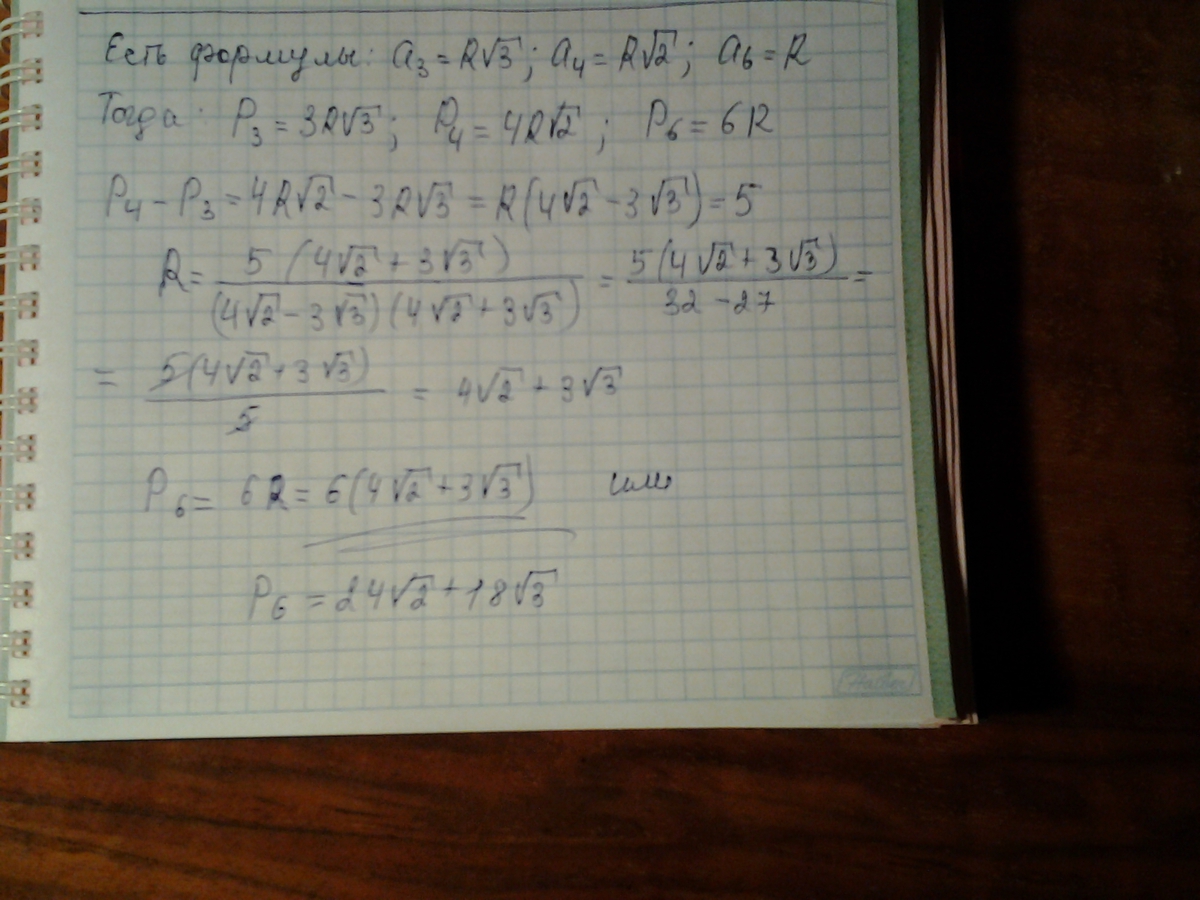 Есть формулы: a₃ = R√3; a₄ = R√2; a₆ = R
Тогда: P₃ = 3R√3; P₄ = 4R√2; P₆ = 6R
P₄ - P₃ = 4R√2 - 3R√3 = R(4√2 - 3√3) = 5
R = 5(4√2 + 3√3) / (4√2 - 3√3)(4√2 + 3√3) = 5(4√2 + 3√3) / 32 - 27 =
= 5(4√2 + 3√3) / 5 = 4√2 + 3√3
P₆ = 6R = 6(4√2 + 3√3) или
P₆ = 24√2 + 18√3